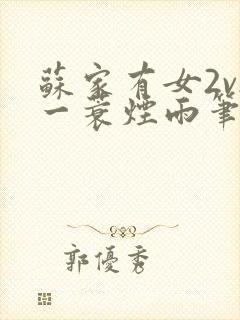 蘇家有女2v
一蓑煙雨筆
郭優秀